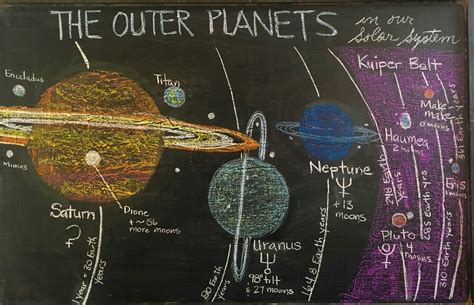 THE OUTER PLANETS
in our
Solar System
Kuiper Belt
Enceladus
Titan
Make-
make
0 moons
Haumea
2 moons
Mimas
Neptune
+ 13
moons
Saturn
Dione
+ ~56
more moons
Uranus
98° tilt
& 27 moons
Pluto
4
moons
Eris
1 year = 30 Earth
years
84 Earth years
164.8 Earth years
248 Earth
Years
285 Earth yrs
310 Earth years
Earth years